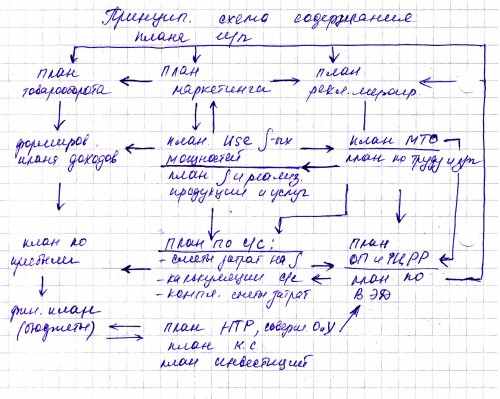 Принцип. схема содержания
плана п/п
план товарооборота
план маркетинга
план рекл. меропр
формиров. плана доходов
план исс ∫-ых мощностей
план ∫ и реализ. продукции и услуг
план МТО
план по труду и з/п
план по прибыли
план по с/с:
- сметы затрат на ∫
- калькуляции с/с
- компл. сметы затрат
план
ОП и ФКРР
план по ВЭД
фин. план (бюджеты)
план НТР, соверш ОиУ
план к.с
план инвестиций